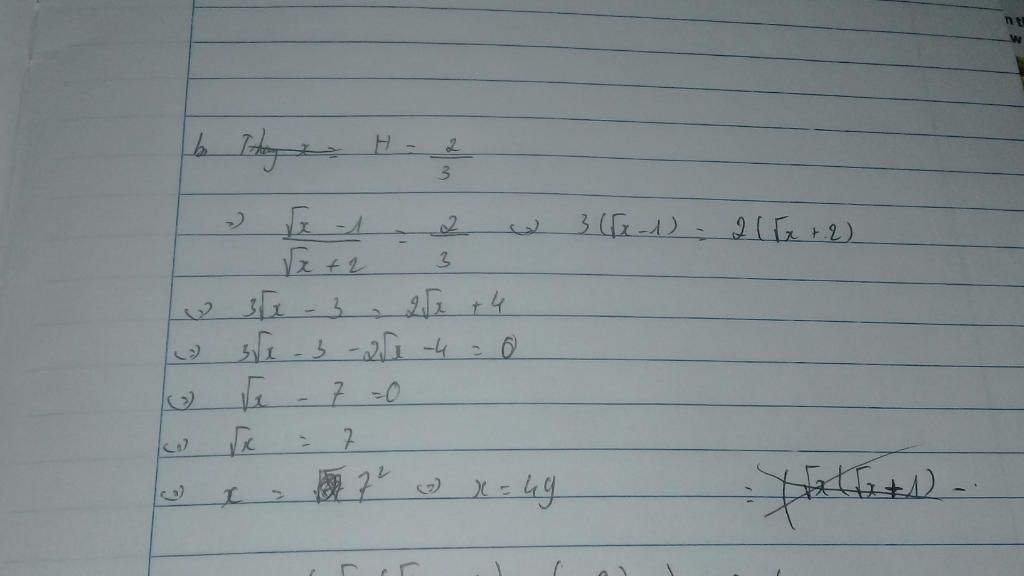 b, Thay x = H = 2/3
=> (√x - 1)/(√x + 2) = 2/3 <=> 3(√x - 1) = 2(√x + 2)
<=> 3√x - 3 = 2√x + 4
<=> 3√x - 3 - 2√x - 4 = 0
<=> √x - 7 = 0
<=> √x = 7
<=> x = 7² <=> x = 49
= (√x(√x + 1) -